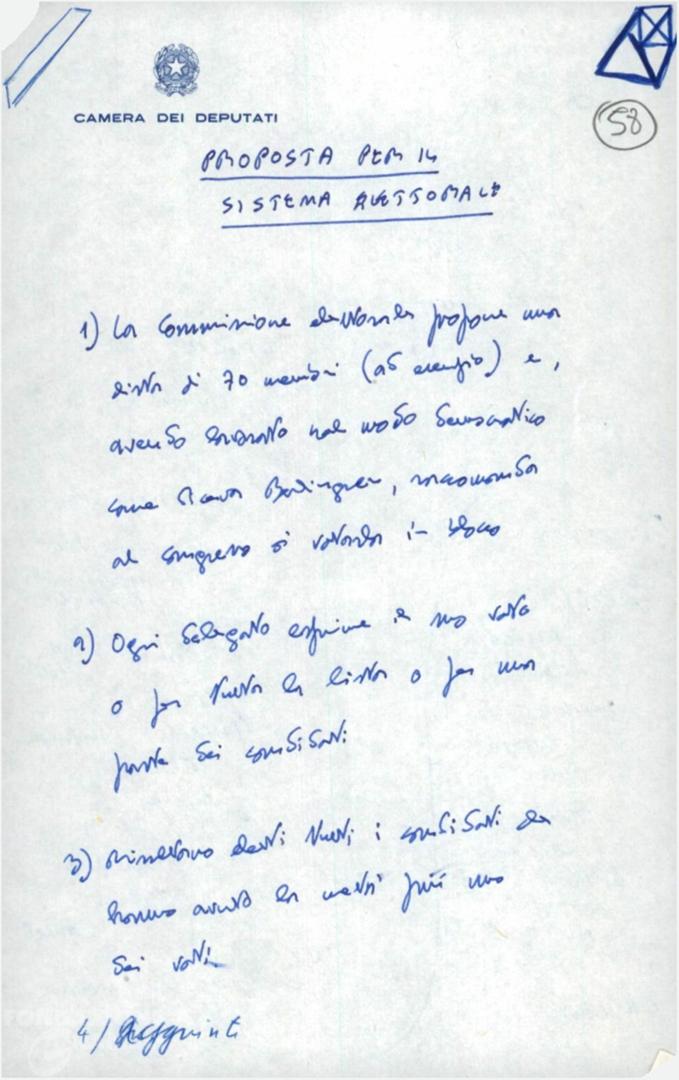 CAMERA DEI DEPUTATI
58
PROPOSTA PER IL
SISTEMA ELETTORALE
1) La Commissione elettorale propone una
lista di 70 membri (ad esempio) e,
avendo lavorato nel modo democratico
come diceva Berlinguer, raccomanda
al congresso di votarla in blocco
2) Ogni delegato esprime il suo voto
o per tutta la lista o per una
parte dei candidati
3) Risultano eletti tutti i candidati che
hanno avuto la metà più uno
dei voti
4)